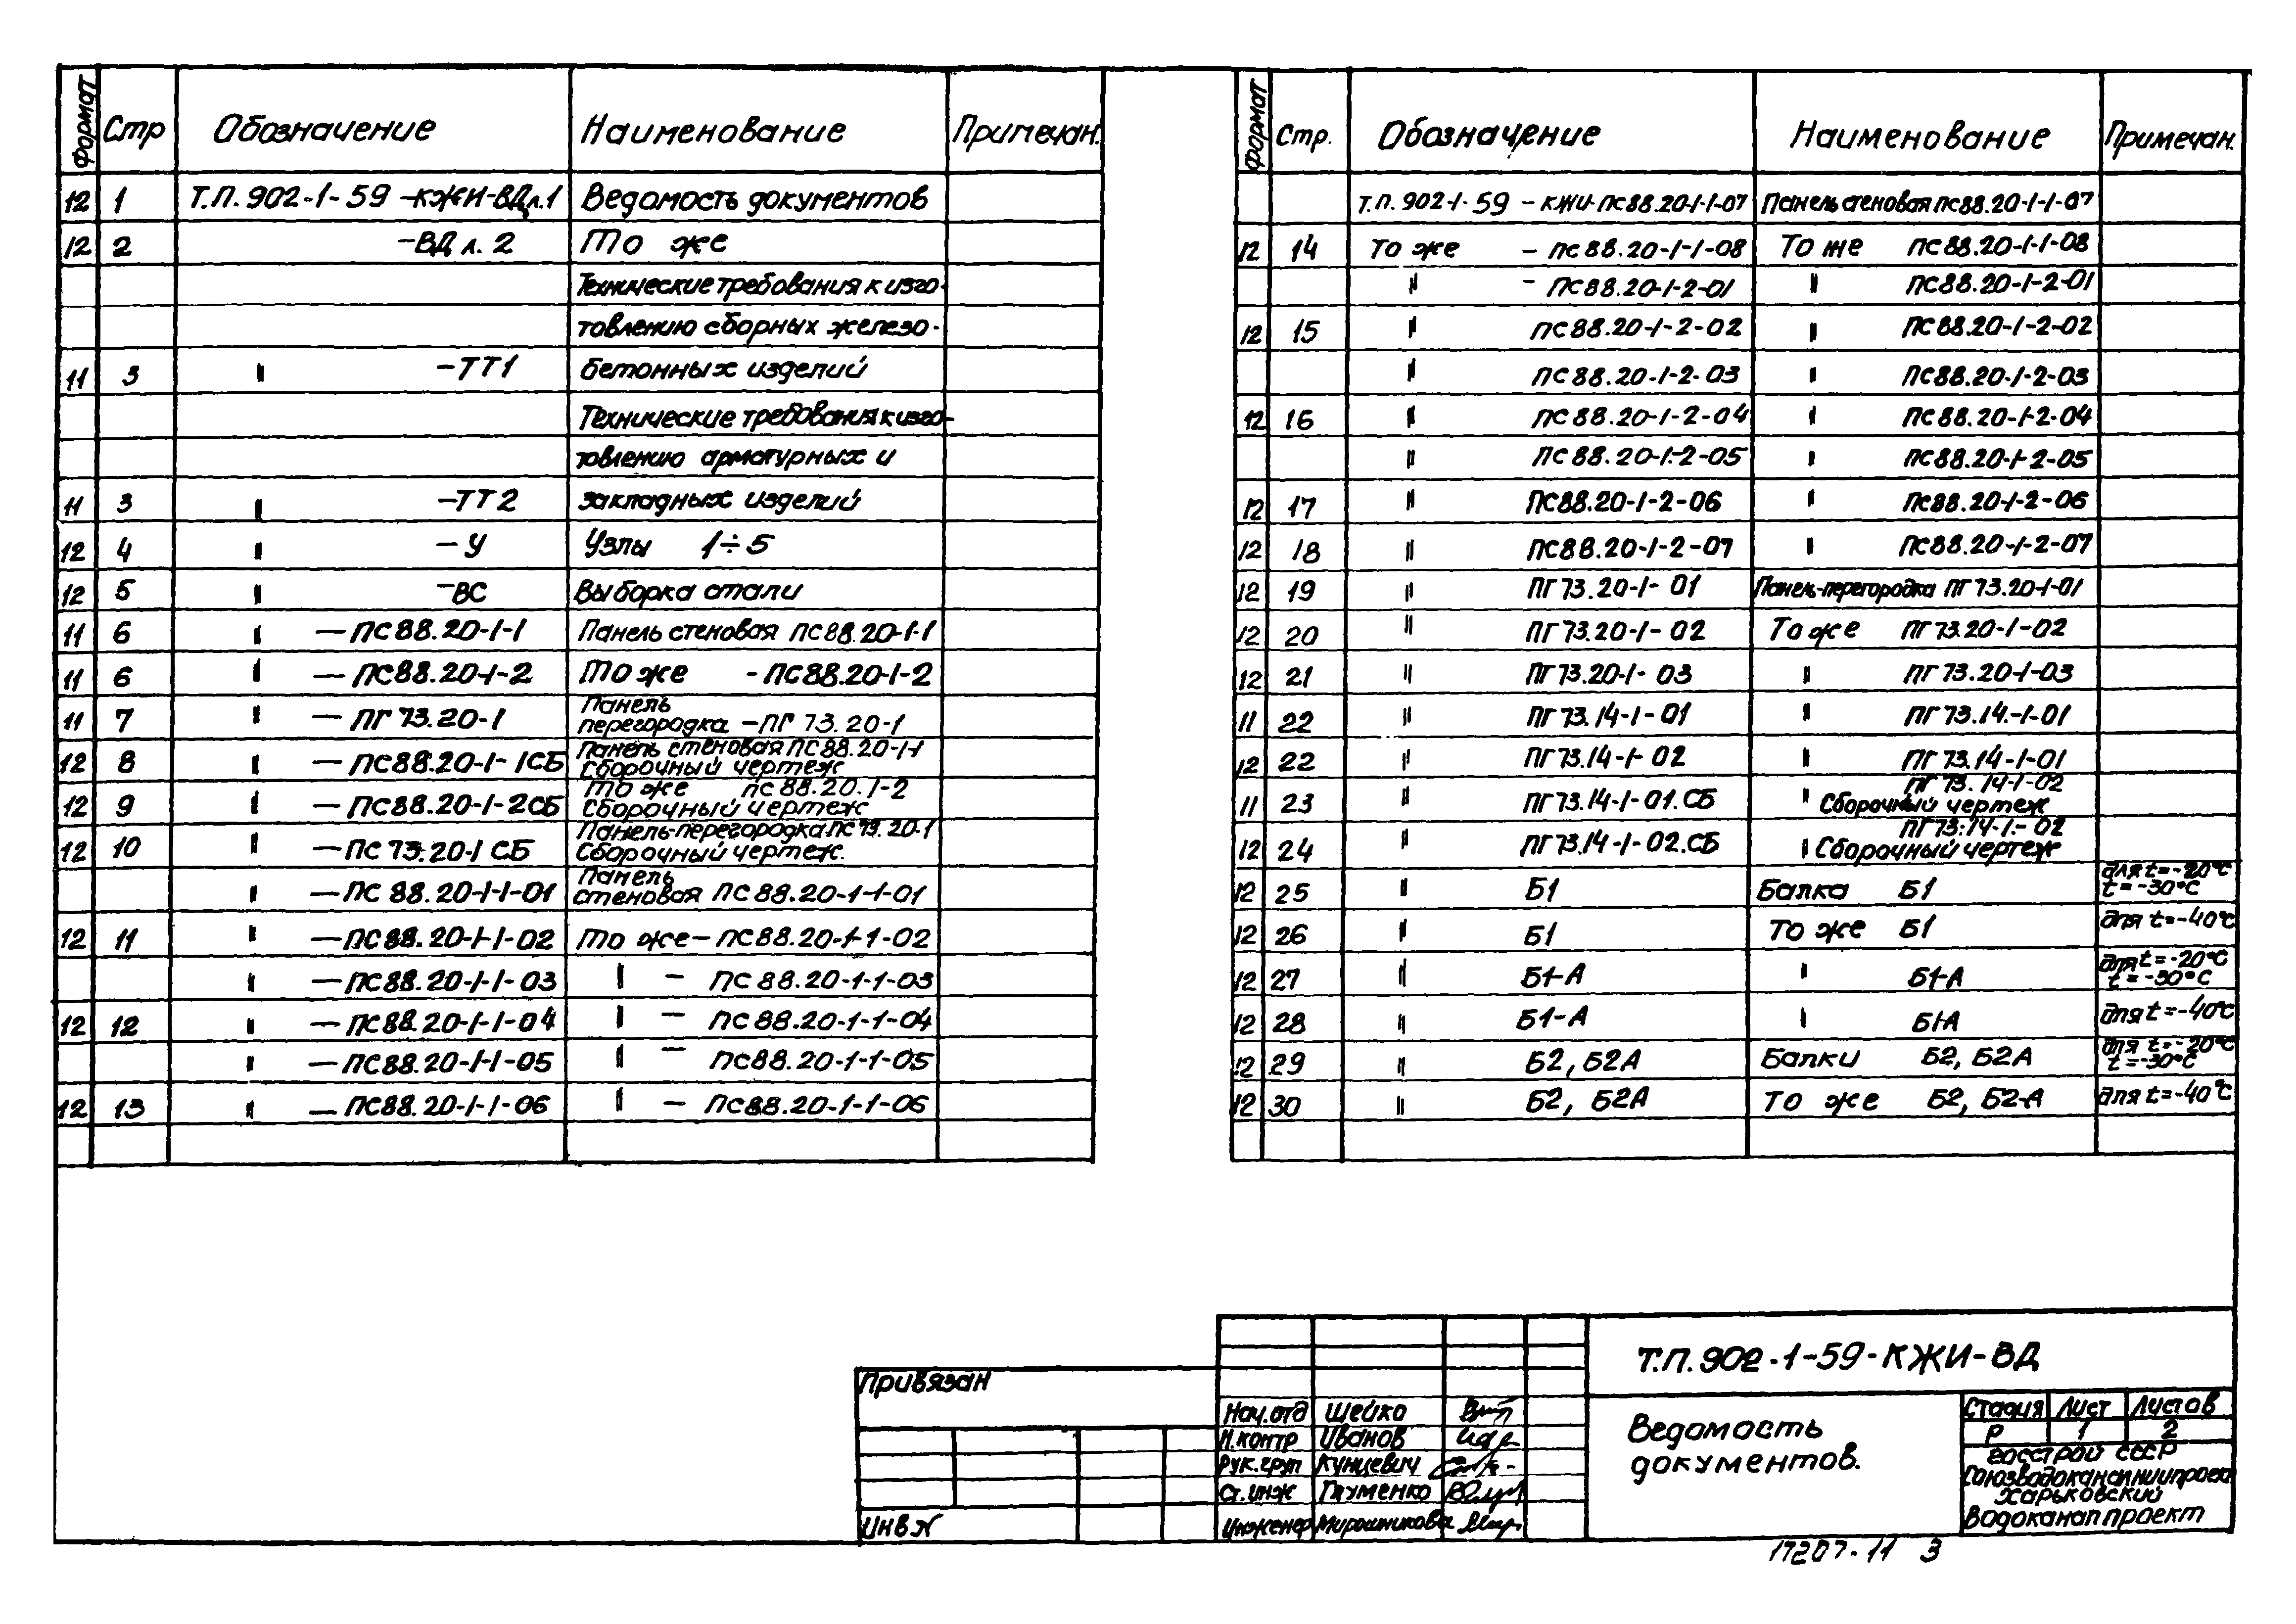 Формат Стр Обозначение Наименование Примечан.
12 1 Т.П. 902-1-59 -КЖИ-ВДл.1 Ведомость документов
12 2 -ВД л. 2 То же
Технические требования к изго-
товлению сборных железо-
11 3 " -ТТ1 бетонных изделий
Технические требования к изго-
товлению арматурных и
11 3 " -ТТ2 закладных изделий
12 4 " - У Узлы 1÷5
12 5 " -ВС Выборка стали
11 6 " - ПС88.20-1-1 Панель стеновая ПС88.20-1-1
11 6 " - ПС88.20-1-2 То же -ПС88.20-1-2
11 7 " - ПГ73.20-1 Панель
перегородка -ПГ 73.20-1
12 8 " - ПС88.20-1-1СБ Панель стеновая ПС88.20-1-1
Сборочный чертеж
12 9 " - ПС88.20-1-2СБ То же ПС 88.20.1-2
Сборочный чертеж
12 10 " - ПС 73.20-1 СБ Панель-перегородка ПС 73.20-1
Сборочный чертеж.
" - ПС 88.20-1-1-01 Панель
стеновая ПС 88.20-1-1-01
12 11 " - ПС88.20-1-1-02 То же - ПС88.20-1-1-02
" - ПС88.20-1-1-03 " - ПС 88.20-1-1-03
12 12 " - ПС88.20-1-1-04 " - ПС 88.20-1-1-04
" - ПС88.20-1-1-05 " - ПС88.20-1-1-05
12 13 " - ПС88.20-1-1-06 " - ПС88.20-1-1-06
Формат Стр. Обозначение Наименование Примечан.
Т.П. 902-1-59 - КЖИ-ПС88.20-1-1-07 Панель стеновая ПС88.20-1-1-07
12 14 То же - ПС88.20-1-1-08 То же ПС88.20-1-1-08
" - ПС88.20-1-2-01 " ПС88.20-1-2-01
12 15 " ПС88.20-1-2-02 " ПС88.20-1-2-02
" ПС88.20-1-2-03 " ПС88.20-1-2-03
12 16 " ПС88.20-1-2-04 " ПС88.20-1-2-04
" ПС88.20-1-2-05 " ПС88.20-1-2-05
12 17 " ПС88.20-1-2-06 " ПС88.20-1-2-06
12 18 " ПС88.20-1-2-07 " ПС88.20-1-2-07
12 19 " ПГ73.20-1-01 Панель-перегородка ПГ73.20-1-01
12 20 " ПГ73.20-1-02 То же ПГ73.20-1-02
12 21 " ПГ73.20-1-03 " ПГ73.20-1-03
11 22 " ПГ73.14-1-01 " ПГ73.14-1-01
12 22 " ПГ73.14-1-02 " ПГ73.14-1-01
11 23 " ПГ73.14-1-01.СБ " ПГ73.14-1-02
Сборочный чертеж
12 24 " ПГ73.14-1-02.СБ " ПГ73.14-1-02
Сборочный чертеж
12 25 " Б1 Балка Б1 для t=-20°С
t=-30°С
12 26 " Б1 То же Б1 для t=-40°С
12 27 " Б1-А " Б1-А для t=-20°С
t=-30°С
12 28 " Б1-А " Б1-А для t=-40°С
12 29 " Б2, Б2А Балки Б2, Б2А для t=-20°С
t=-30°С
12 30 " Б2, Б2А То же Б2, Б2-А для t=-40°С
Привязан
Инв N
Нач.отд Шейко
Н.контр Иванов
Рук.груп Кунцевич
Ст.инж Глуменко
Инженер Мирошникова
Т.П. 902-1-59-КЖИ-ВД
Ведомость
документов.
Стадия Лист Листов
Р 1 2
Госстрой СССР
Союзводоканалниипроект
Харьковский
Водоканалпроект
17207-11 3